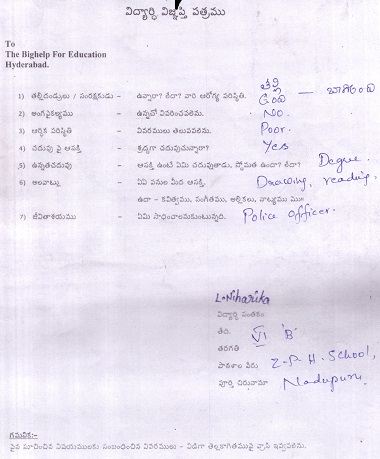 విద్యార్థి విజ్ఞప్తి పత్రము
To
The Bighelp For Education
Hyderabad.
తల్లి
1) తల్లిదండ్రులు / సంరక్షకుడు - ఉన్నారా? లేదా? వారి ఆరోగ్య పరిస్థితి. God — బాగింది
2) అంగవైకల్యము - ఉన్నచో వివరించవలెను. No.
3) ఆర్థిక పరిస్థితి - వివరములు తెలుపవలెను. Poor.
4) చదువు పై ఆసక్తి - శ్రద్ధగా చదువుచున్నారా? Yes
5) ఉన్నతచదువు - ఆసక్తి ఉంటే ఏమి చదువుతాడు, స్తోమత ఉందా? లేదా? Degue.
6) అలవాట్లు - ఏఏ పనుల మీద ఆసక్తి. Drawing, reading.
ఉదా - కవిత్వము, సంగీతము, అల్లికలు, నాట్యము
7) జీవితాశయము - ఏమి సాధించాలనుకుంటున్నది. Police officer.
L. Niharika
విద్యార్థి సంతకం
తేది.
తరగతి VI 'B'
పాఠశాల పేరు Z.P.H. School,
పూర్తి చిరునామా Nadupuru.
గమనిక:-
పైన సూచించిన విషయములకు సంబంధించిన వివరములు - విడిగా తెల్లకాగితముపై వ్రాసి ఇవ్వవలెను.